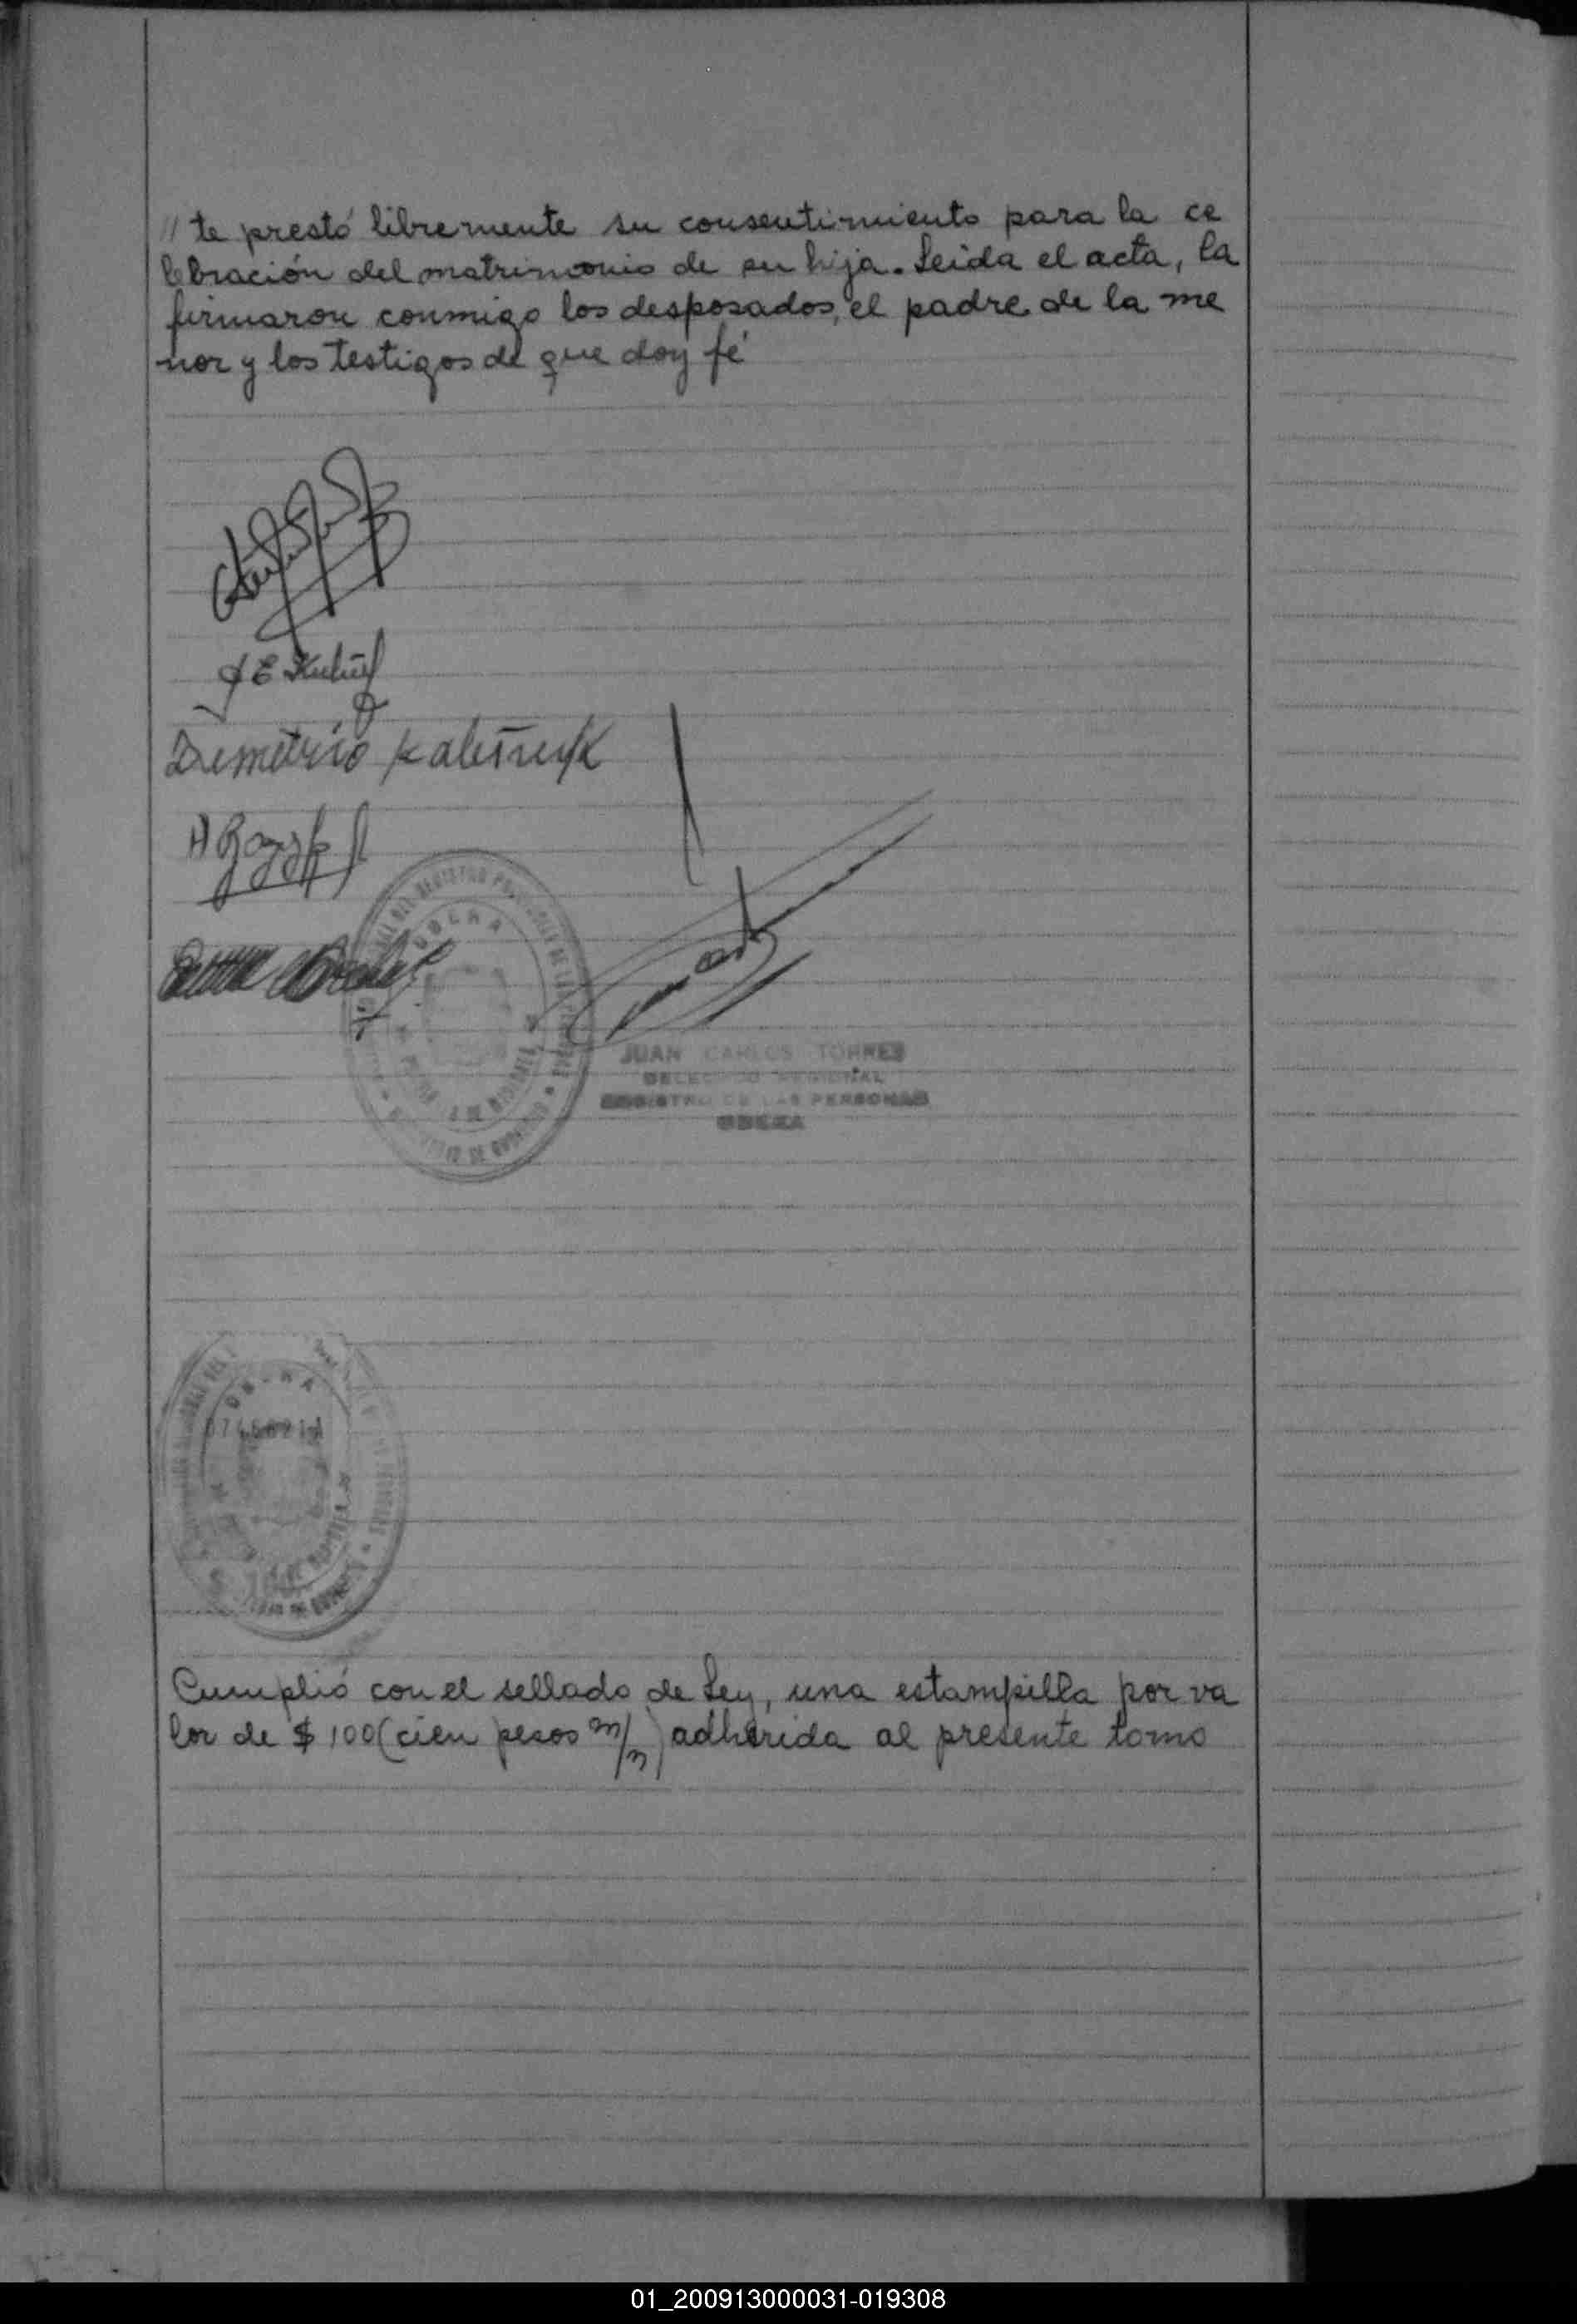 // te prestó libremente su consentimiento para la ce
lebración del matrimonio de su hija. Leida el acta, la
firmaron conmigo los desposados, el padre de la me
nor y los testigos de que doy fé
Demetrio Kalisñuk
OBERA
JUAN CARLOS TORRES
DELEGADO REGIONAL
REGISTRO DE LAS PERSONAS
OBERA
Cumplió con el sellado de Ley, una estampilla por va
lor de $ 100 (cien pesos m/n) adherida al presente tomo
01_200913000031-019308